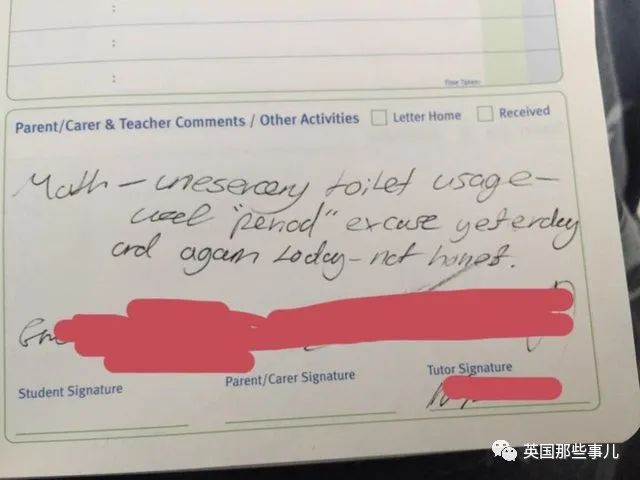 :
:
:
Time Taken:
Parent/Carer & Teacher Comments / Other Activities Letter Home Received
Math – unesercery toilet usage –
used "period" excuse yesterday
and again today – not honest.
Student Signature
Parent/Carer Signature
Tutor Signature
英国那些事儿